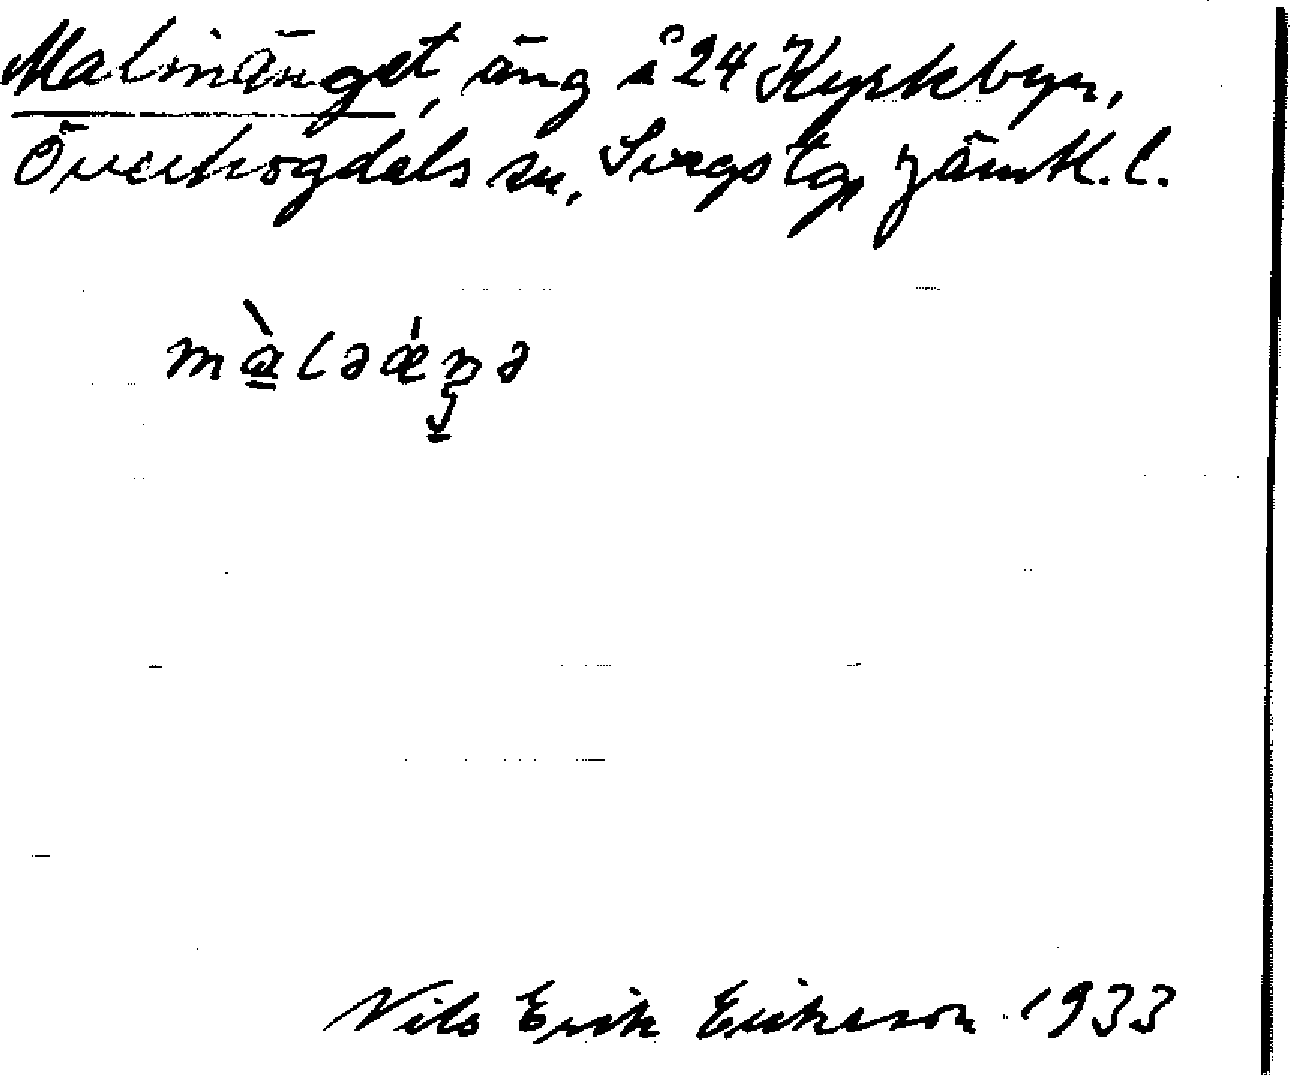 Malinänget, äng å 24 Kyrkbyn,
Överhogdals sn, Svegs tg, Jämtl. l.
màlǝǽŋǝ
Nils Erik Eriksson 1933